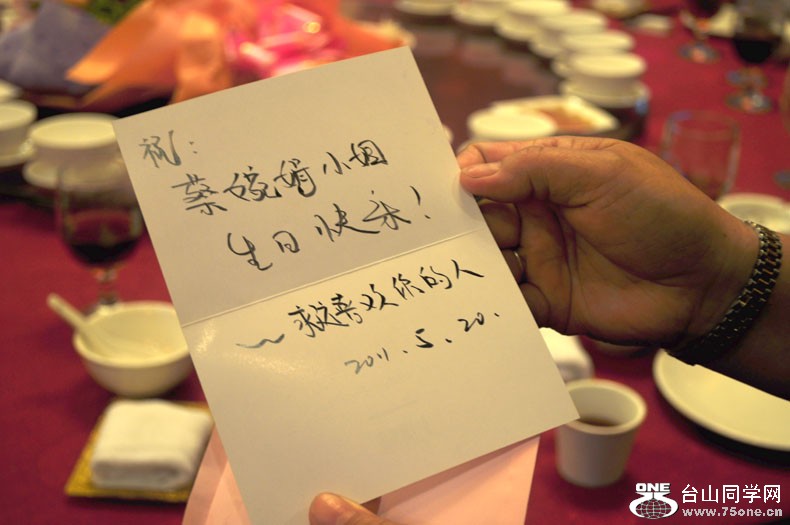 祝:
蔡婉婿小姐
生日快乐!
~ 最喜欢你的人
2011.5.20.
ONE
台山同学网
www.75one.cn